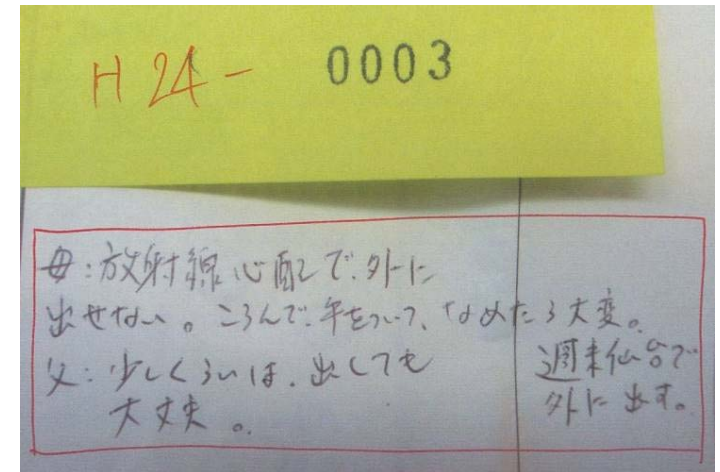 H24- 0003
母:放射線心配で、外に
出せない。ころんで、手をついて、なめたら大変。
父:少しくらいは、出しても
大丈夫。
週末仙台で
外に出す。